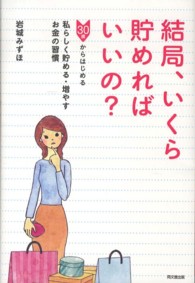 結局、いくら
貯めれば
いいの?
30歳からはじめる
私らしく貯める・増やす
お金の習慣
岩城みずほ
同文舘出版